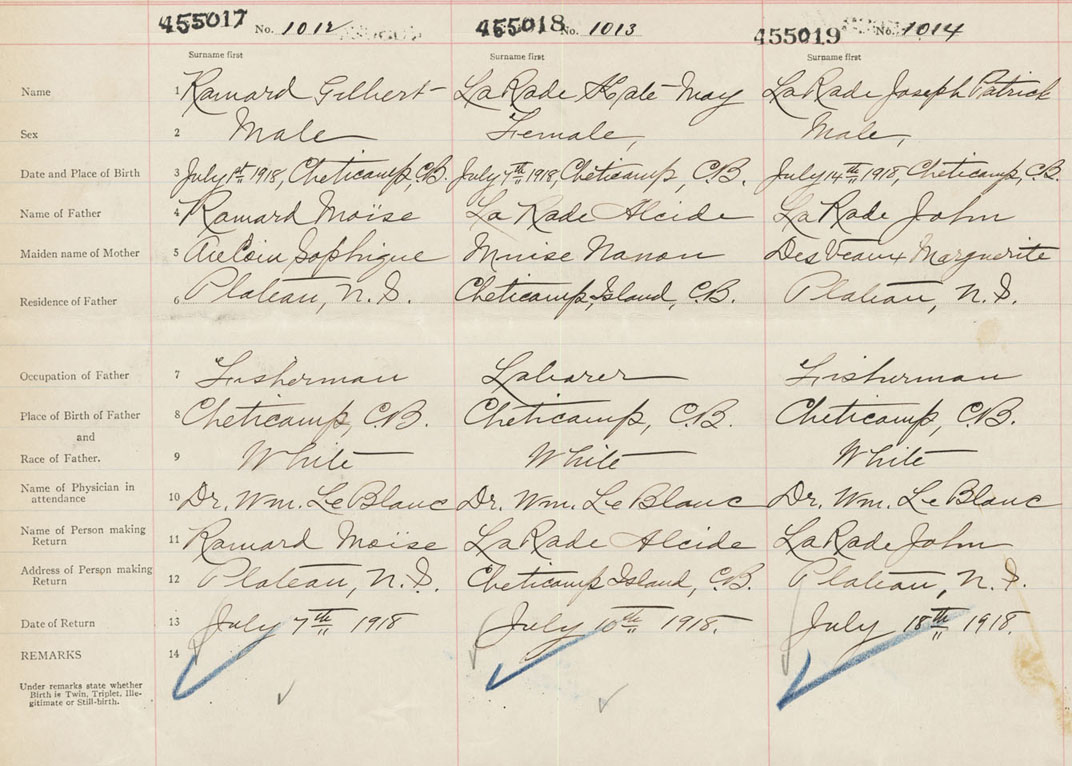 455017 No. 1012 455018 No. 1013 455019 No. 1014
Surname first Surname first Surname first
Name 1 Ramard Gilbert LaRade Kate May LaRade Joseph Patrick
Sex 2 Male Female, Male,
Date and Place of Birth 3 July 1st 1918, Cheticamp, C.B. July 7th 1918, Cheticamp, C.B. July 14th 1918, Cheticamp, C.B.
Name of Father 4 Ramard Moïse LaRade Alcide LaRade John
Maiden name of Mother 5 Sophique Muise Nanon DesVeaux Marguerite
Residence of Father 6 Plateau, N.S. Cheticamp Island, C.B. Plateau, N.S.
Occupation of Father 7 Fisherman Laborer Fisherman
Place of Birth of Father 8 Cheticamp, C.B. Cheticamp, C.B. Cheticamp, C.B.
and
Race of Father. 9 White White White
Name of Physician in
attendance 10 Dr. Wm. LeBlanc Dr. Wm. LeBlanc Dr. Wm. LeBlanc
Name of Person making
Return 11 Ramard Moïse LaRade Alcide LaRade John
Address of Person making
Return 12 Plateau, N.S. Cheticamp Island, C.B. Plateau, N.S.
Date of Return 13 July 7th 1918 July 10th 1918. July 18th 1918.
REMARKS 14
Under remarks state whether
Birth is Twin, Triplet, Ille-
gitimate or Still-birth.